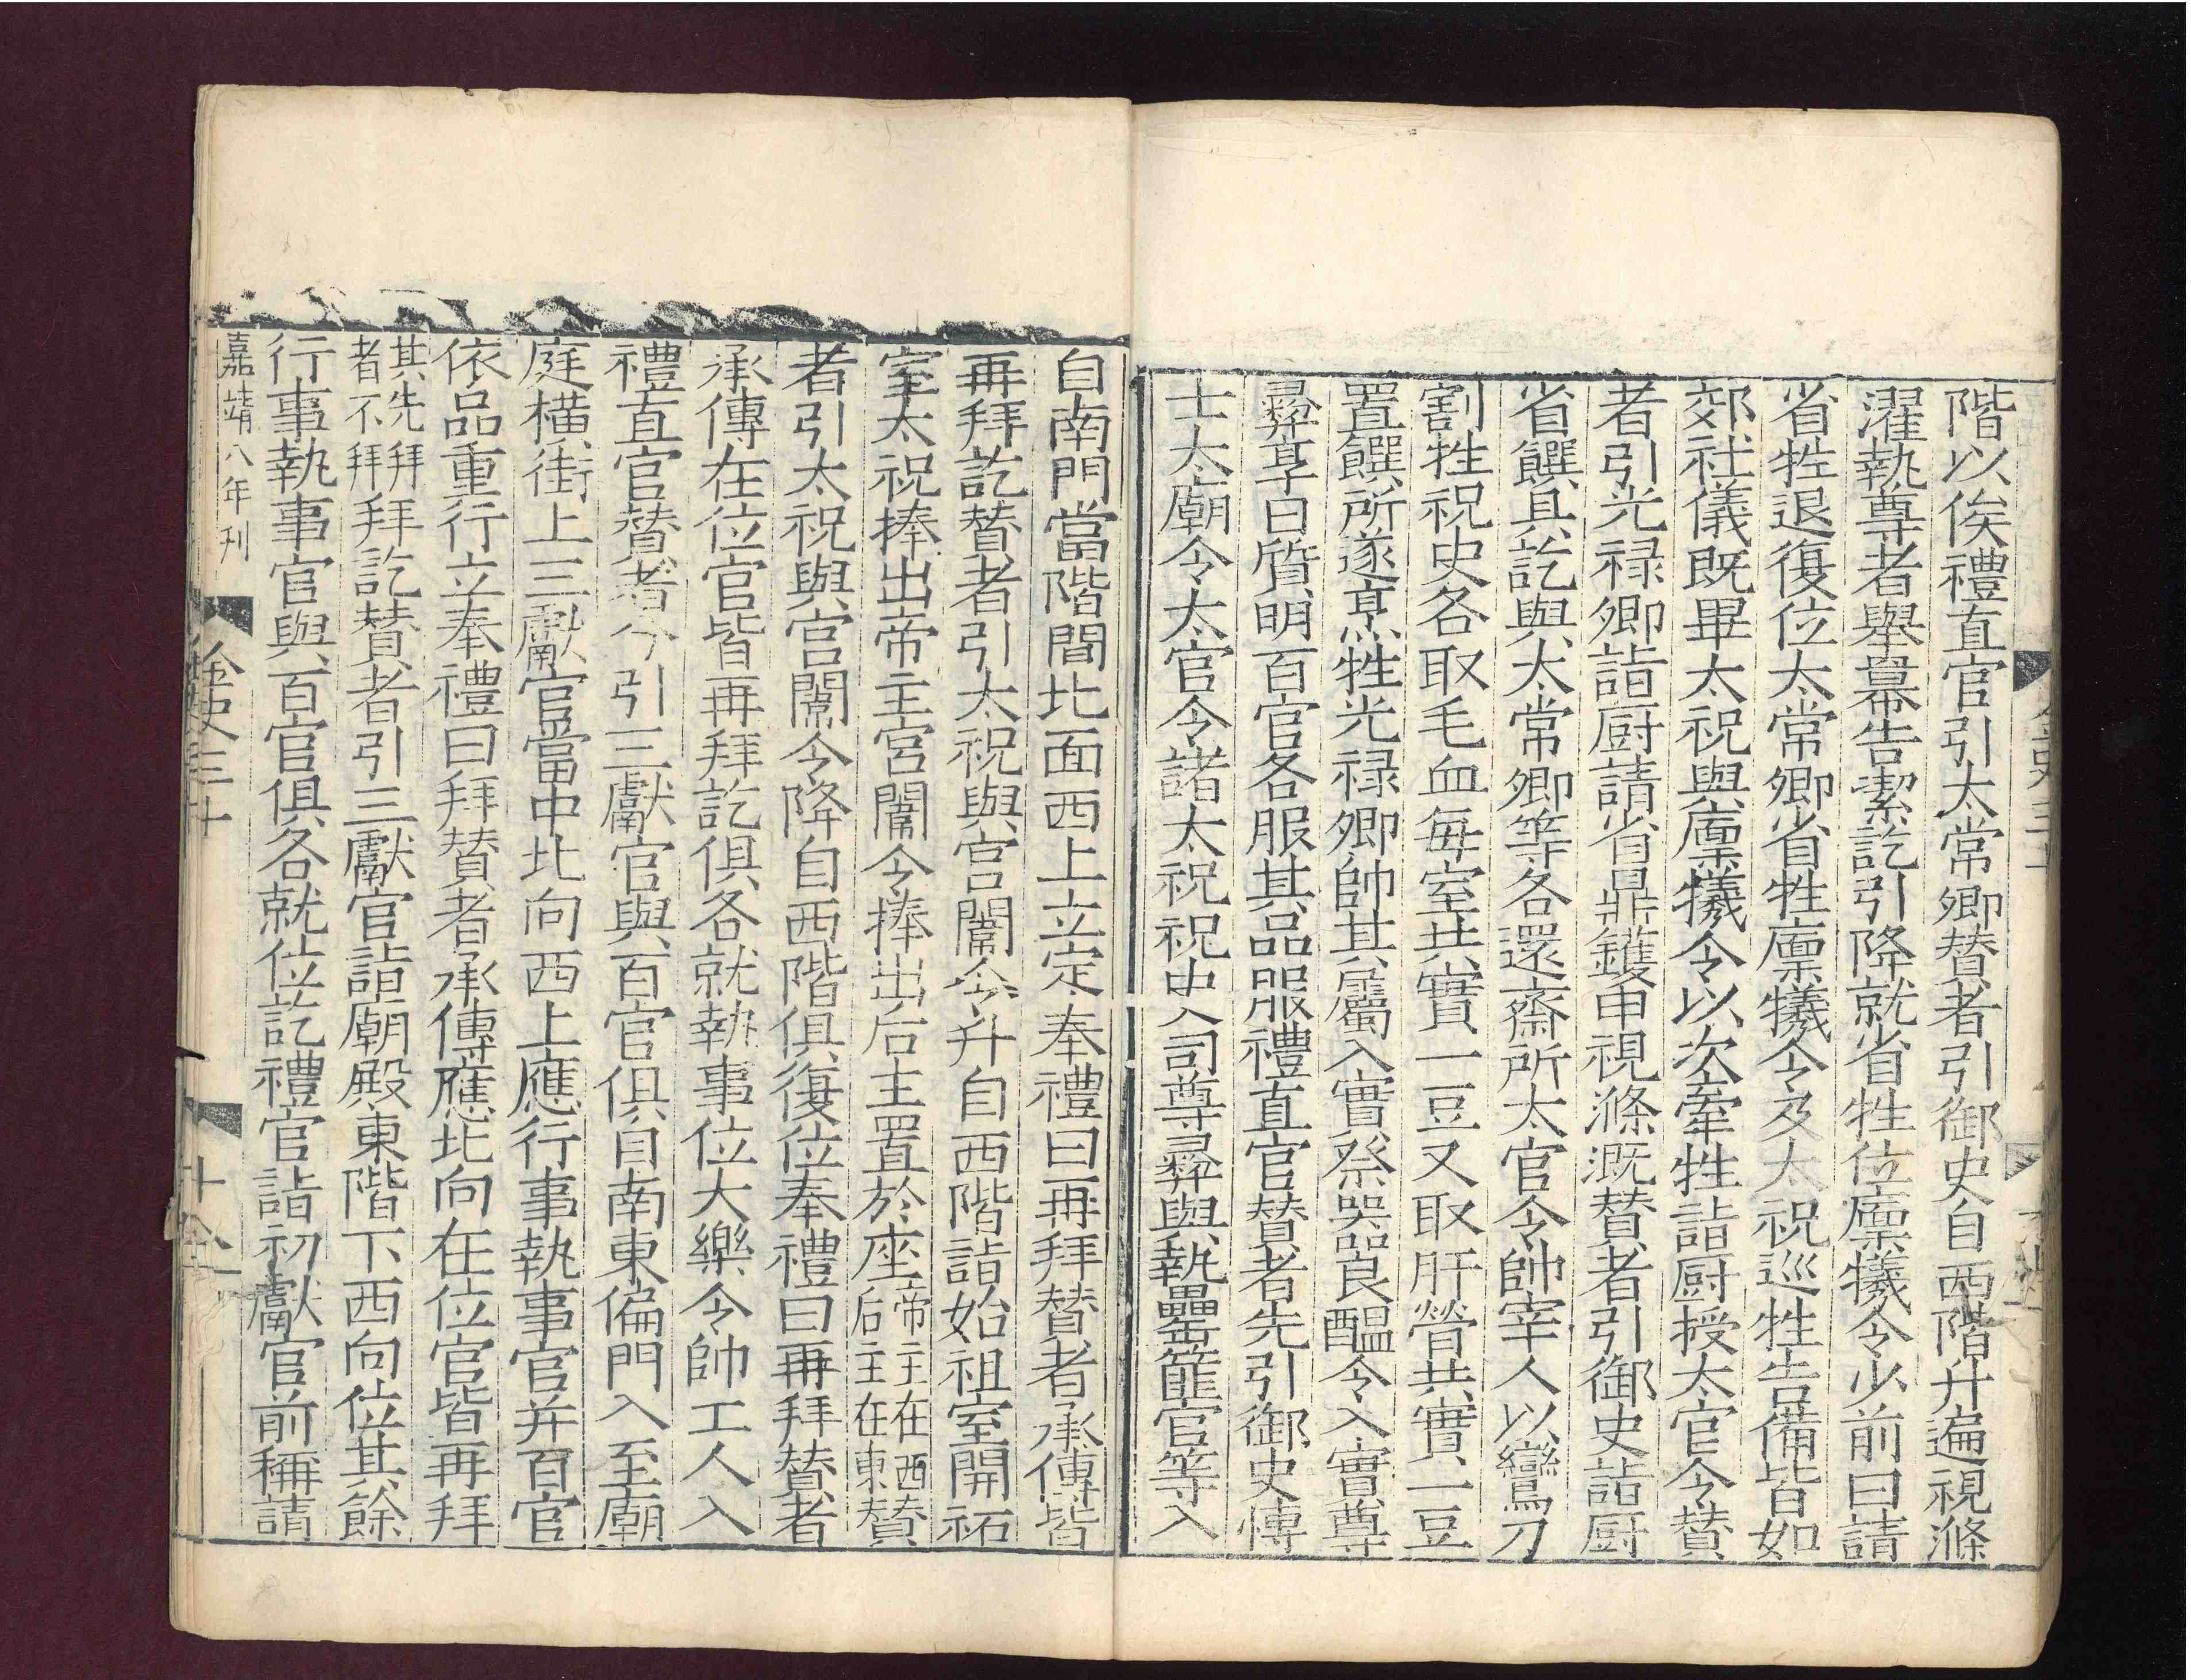 階以俟禮直官引太常卿贊者引御史自西階升遍視滌
濯執尊者舉羃告潔訖引降就省牲位廩犧令少前曰請
省牲退復位太常卿省牲廩犧令及太祝巡牲告備皆如
郊社儀既畢太祝與廩犧令以次牽牲詣厨授太官令贊
者引光禄卿詣厨請省鼎鑊申視滌溉贊者引御史詣厨
省饌具訖與太常卿等各還齋所太官令帥宰人以鸞刀
割牲祝史各取毛血每室共實一豆又取肝膋共實一豆
置饌所遂烹牲光禄卿帥其屬入實祭器良醖令入實尊
彝享日質明百官各服其品服禮直官贊者先引御史博
士太廟令太官令諸太祝祝史司尊彝與執罍篚官等入
自南門當階間北面西上立定奉禮曰再拜贊者承傳皆
再拜訖贊者引太祝與宫闈令升自西階詣始祖室開祏
室太祝捧出帝主宫闈令捧出后主置於座帝主在西
后主在東贊
者引太祝與宫闈令降自西階俱復位奉禮曰再拜贊者
承傳在位官皆再拜訖俱各就執事位大樂令帥工人入
禮直官贊者分引三獻官與百官俱自南東偏門入至廟
庭橫街上三獻官當中北向西上應行事執事官并百官
依品重行立奉禮曰拜贊者承傳應北向在位官皆再拜
其先拜
者不拜拜訖贊者引三獻官詣廟殿東階下西向位其餘
行事執事官與百官俱各就位訖禮官詣初獻官前稱請
嘉靖八年刊
金史三十